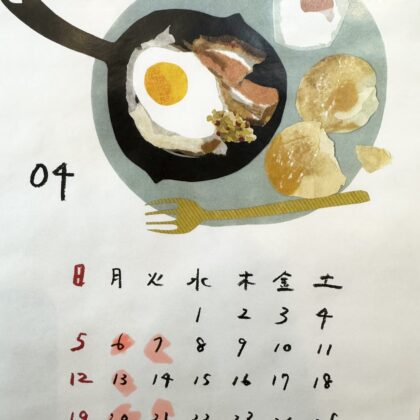 04
日 月 火 水 木 金 土
1 2 3 4
5 6 7 8 9 10 11
12 13 14 15 16 17 18
19 20 21 22 23